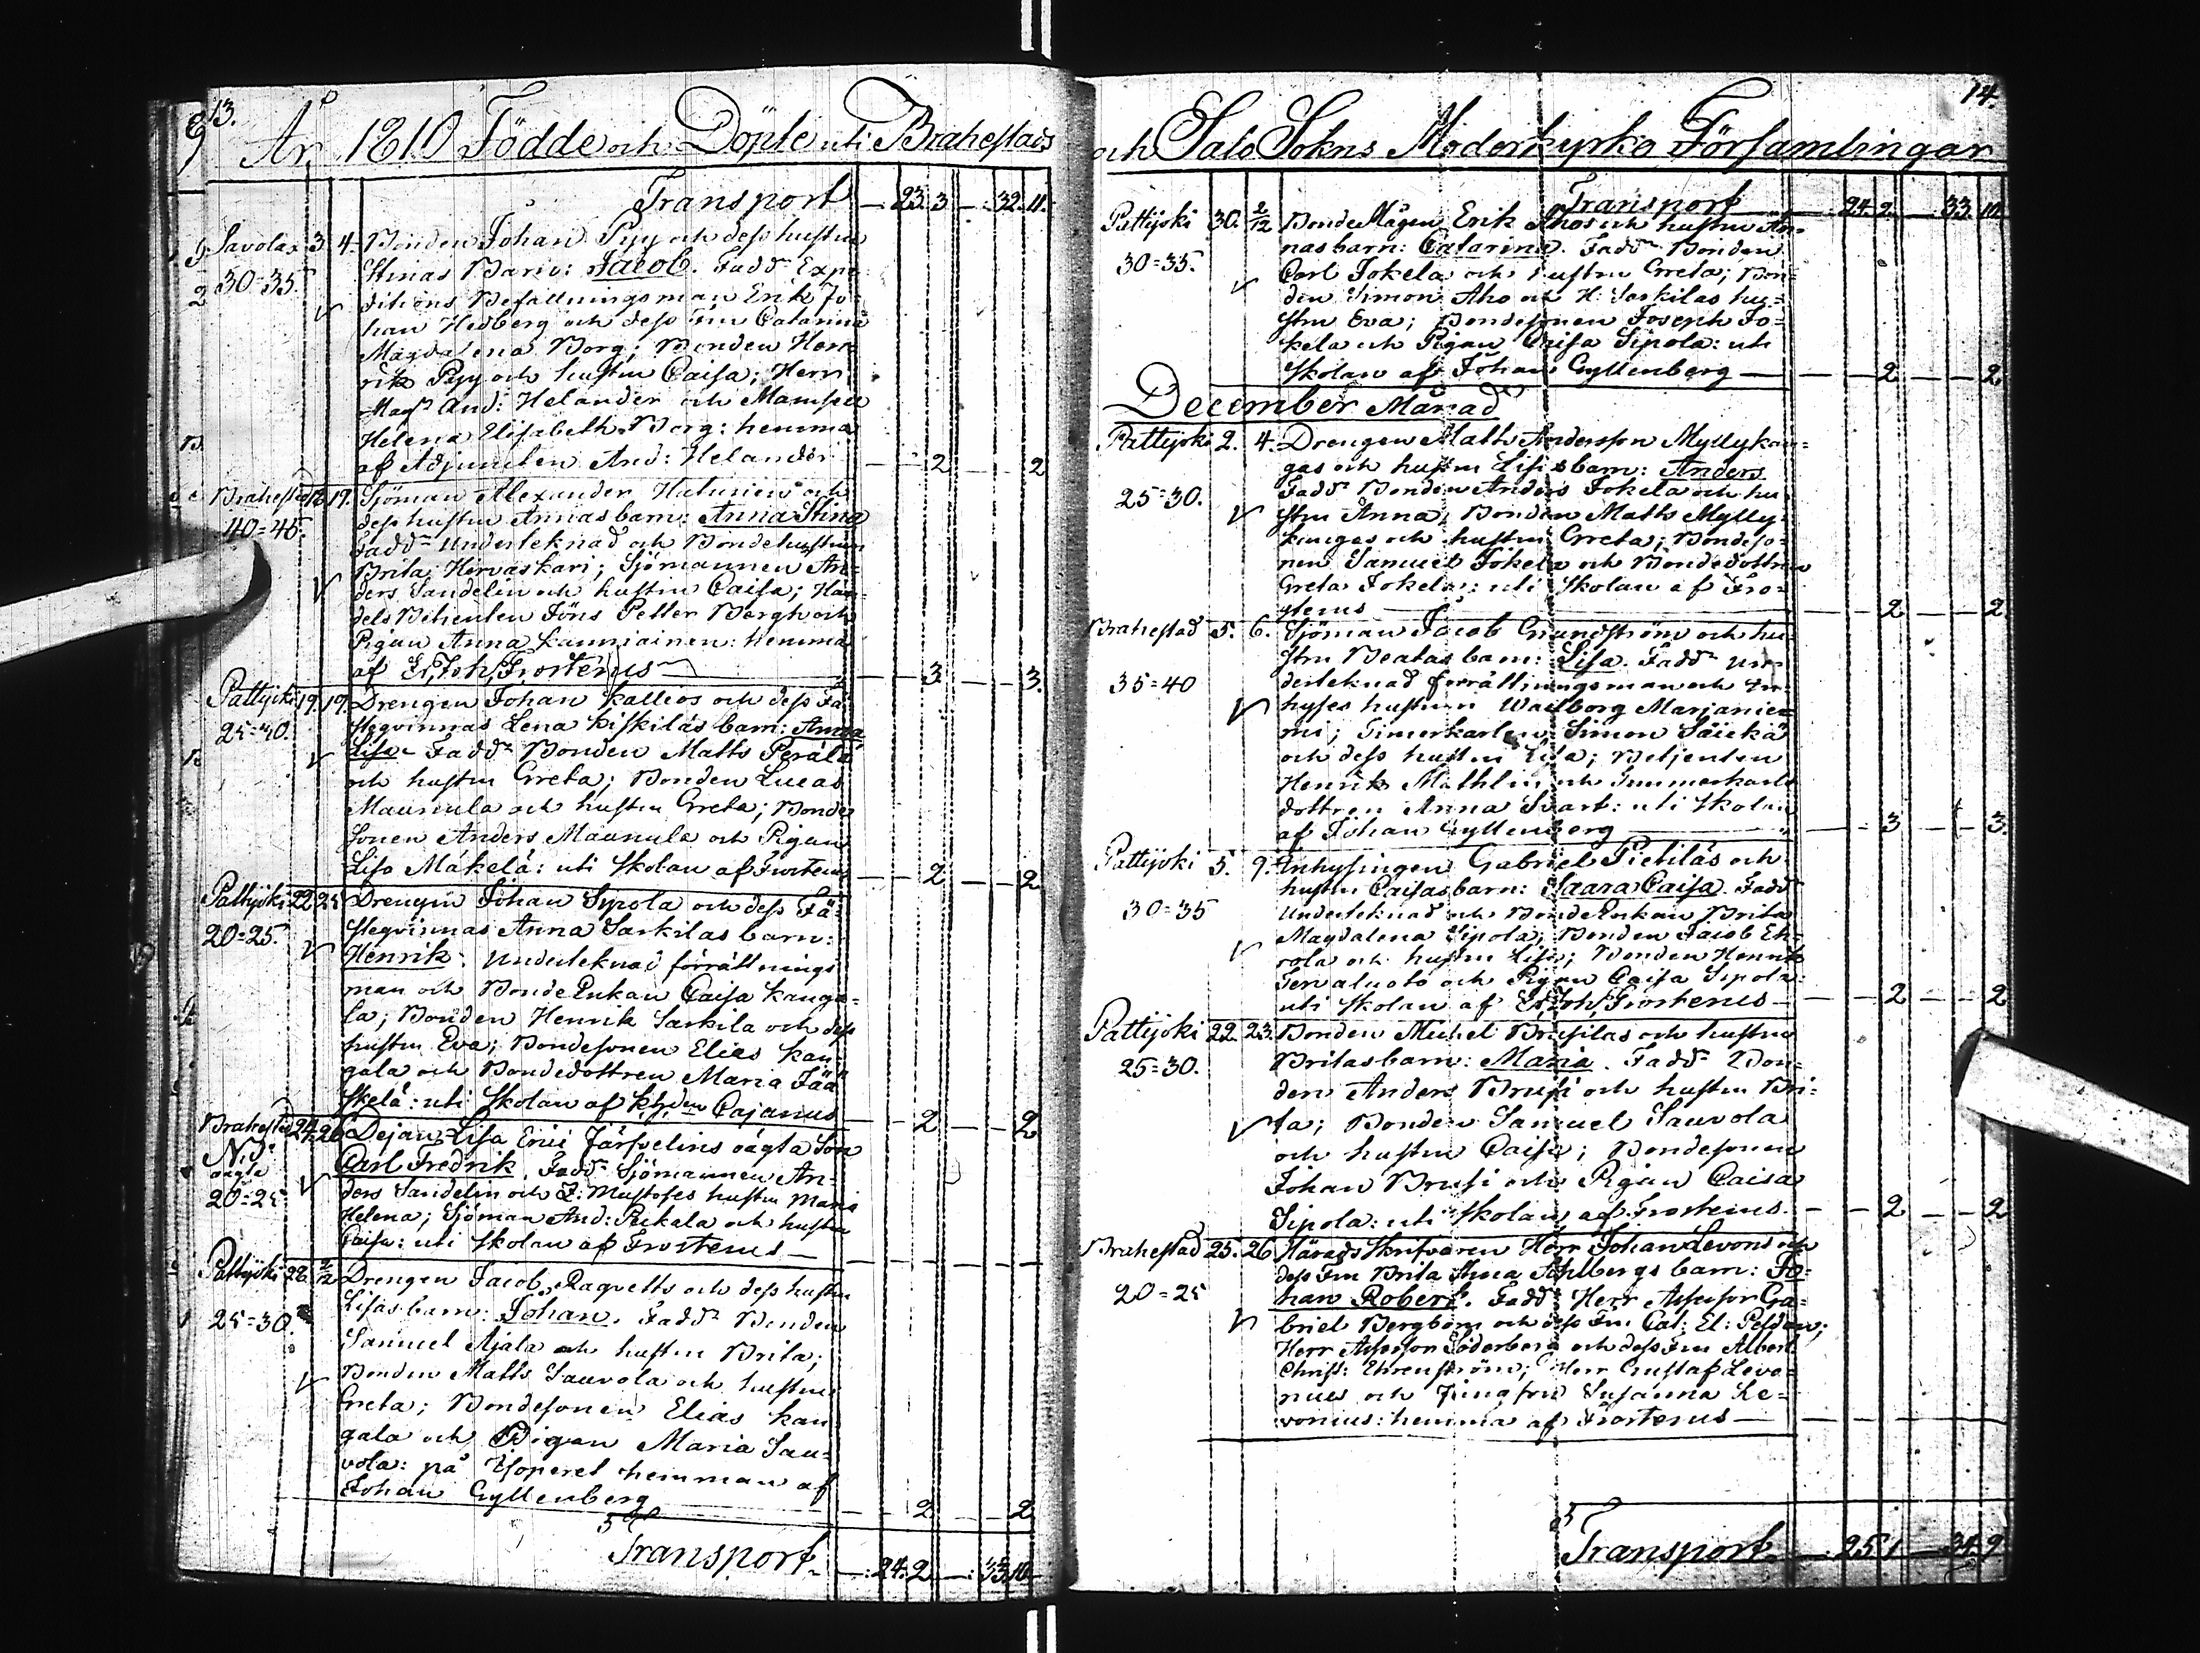 13.
År 1810 Födde och Döpte uti Brahestads
Transport — 23. 3 — 32. 11.
Savolax 3. 4. Bonden Johan Pyy och dess hustru
30=35. Stinas Barn: Jacob. Fadd. Expe-
ditions Befallningsman Erik Jo-
han Hedberg och dess Fru Catarina
Magdalena Borg; Bonden Hen-
rik Pyy och hustru Caisa; Herr
Mag. And: Helander och Mamsell
Helena Elisabeth Borg: hemma
af Adjuncten And: Helander — 2 — 2
Brahestad 17. Sjöman Alexander och
40=45. dess hustru Annas barn: Anna Stina
Fadd. Underteknad och Bondehustrun
Brita Hervaskari; Sjömannen An-
ders Sandelin och hustru Caisa; Han-
dels Betienten Jöns Petter Bergh och
Pigan Anna Kanniainen: hemma
af Er. Joh. Frosterus — 3 — 3.
Pattijoki 19. 19. Drengen Johan Kallios och dess Fä-
25=30. steqvinnas Lena Kiskiläs barn: Anna
Lisa. Fadd. Bonden Matts Perälä
och hustru Greta; Bonden Lucas
Maunula och hustru Greta; Bonde
Sonen Anders Maunula och Pigan
Lisa Mäkelä: uti Skolan af Frosterus — 2 — 2
Pattijoki 22. 25 Drengen Johan Sipola och dess Fä-
20=25. steqvinnas Anna Sarkilas barn:
Henrik. Underteknad förrättnings
man och Bonde Enkan Caisa Kanga-
la; Bonden Henrik Sarkila och dess
hustru Eva; Bondesonen Elias Kan-
gala och Bondedottren Maria Jää-
skelä: uti Skolan af Cajanus — 2 — 2
Brahestad 24. 26 Dejan Lisa Eric Järfvelins oägta Son
N.B. Carl Fredrik. Fadd. Sjömannen An-
oägta ders Sandelin och hustru Maria
20=25. Helena; Sjöman And: Pekala och hustru
Caisa: uti Skolan af Frosterus —
Pattijoki 28. 2/12 Drengen Jacob Ragvetts och dess hustru
25=30. Lisas barn: Johan. Fadd. Bonden
Samuel Ajala och hustru Brita;
Bonden Matts Sauvola och hustru
Greta; Bondesonen Elias Kan-
gala och Pigan Maria Sau-
vola: på hemman af
Johan Gyllenberg — 2 — 2
Transport — 24. 2 — 33. 10
14.
och Salo Sokns Moderkyrko Församlingar
Transport — 24. 2 — 33. 10
Pattijoki 30. 2/12 Bonde Mågen Erik Ahos och hustru An-
30=35. nas barn: Catarina. Fadd. Bonden
Carl Jokela och hustru Greta; Bon-
den Simon Aho och H: Sarkilas hu-
stru Eva; Bondesonen Joseph Jo-
kela och Pigan Caisa Sipola: uti
Skolan af Johan Gyllenberg — 2 — 2
December Månad
Pattijoki 2. 4. Drengen Matts Andersson Myllykan-
gas och hustru Lisas barn: Anders
25=30. Fadd. Bonden Anders Jokela och hu-
stru Anna; Bonden Matts Mylly-
kangas och hustru Greta; Bondeso-
nen Samuel Jokela och Bondedottren
Greta Jokela: uti Skolan af Fro-
sterus — 2 — 2.
Brahestad 5. 6. Sjöman Jacob Grundström och hu-
stru Beatas barn: Lisa. Fadd. Un-
35=40 derteknad förrättningsman och In-
hyses hustrun Walborg Marjanie-
mi; Timerkarlen Simon Säickä
och dess hustru Lisa; Betjenten
Henrik Mathlin och Timmerkarls
dottren Anna Svart: uti Skolan
af Johan Gyllenberg — 3 — 3.
Pattijoki 5. 9. Inhysingen Gabriel Pietiläs och
hustru Caisas barn: Saara Caisa. Fadd.
30=35 Undertecknad och Bonde Enkan Brita
Magdalena Sipola; Bonden Jacob Eh-
rola och hustru Lisa; Bonden Henrik
Tervaluoto och Pigan Caisa Sipola:
uti Skolan af Er. Joh. Frosterus — 2 — 2
Pattijoki 22. 23. Bonden Michel Brusilas och hustru
25=30. Britas barn: Maria. Fadd. Bon-
den Anders Brusi och hustru Bri-
ta; Bonden Samuel Sauvola
och hustru Caisa; Bondesonen
Johan Brusi och Pigan Caisa
Sipola: uti Skolan af Frosterus. — 2 — 2
Brahestad 25. 26 Härads Skrifvaren Herr Johan Levons och
dess Fru Brita Stina Ahlbergs barn: Jo-
20=25 han Robert. Fadd. Herr Assessor Ga-
briel Bergbom och dess Fru Cat: El: Peldan;
Herr Assessor Söderberg och dess Fru Albert.
Christ: Ehrenström; Herr Gustaf Levo-
nius och Jungfru Susanna Le-
vonius: hemma af Frosterus —
Transport — 25. 1 — 34. 9